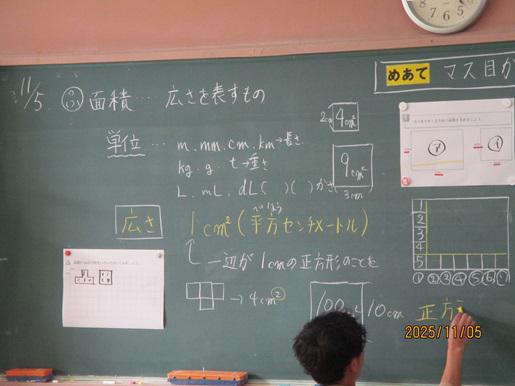 11/5
面積…広さを表すもの
めあて マス目が
単位…
m. mm. cm. km→長さ
kg. g. t→重さ
L. mL. dL( )( )かさ
2cm 4cm²
9cm²
3cm
広さ
1cm²(平方センチメートル)
一辺が1cmの正方形のことを
→4cm²
100cm² 10cm
正方
ア
イ
1
2
3
4
5
① ② ③ ④ ⑤ ⑥
2025/11/05